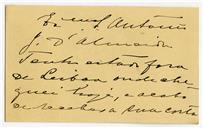 Exmo Sr. Antonio
J. d'Almeida
Tenho estado fora
de Lisboa onde che-
guei hoje, e acabo
de receber a sua carta